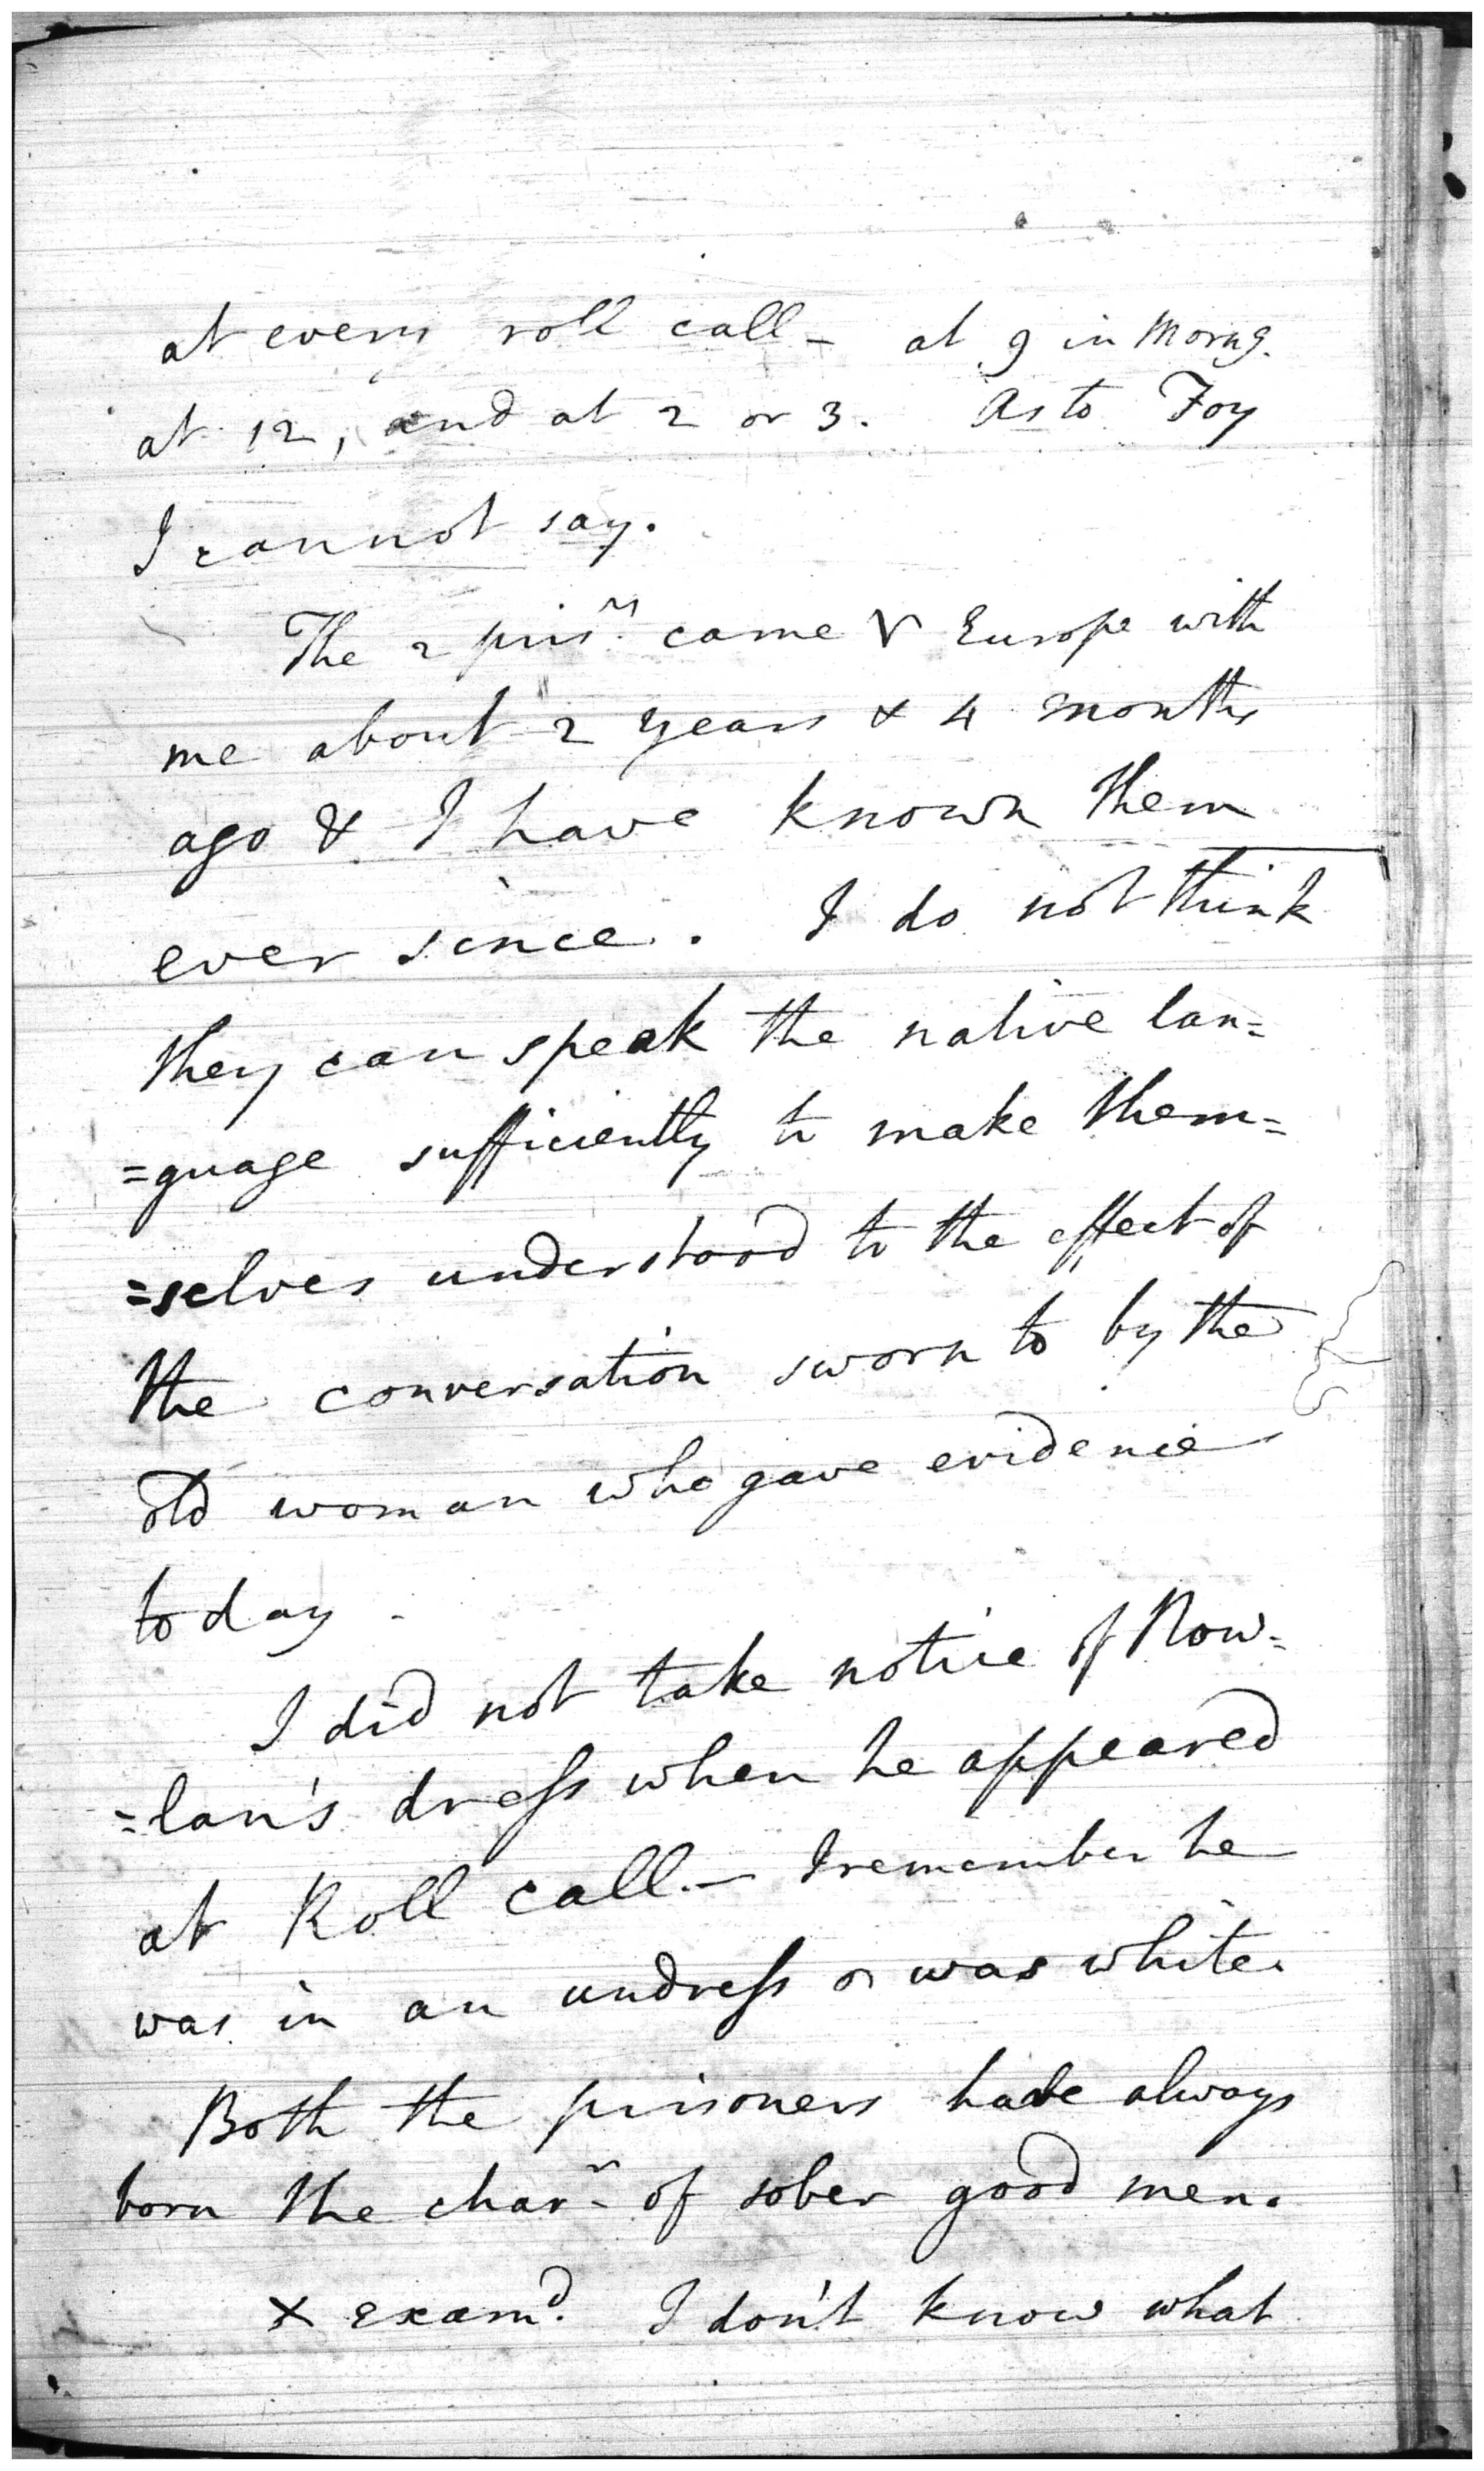 at every roll call - at 9 in Morng.
at 12, and at 2 or 3. As to Foy
I cannot say.
The 2 pris.rs came Europe with
me about 2 years & 4 months
ago & I have known them
ever since. I do not think
they can speak the native lan=
=guage sufficiently to make them=
=selves understood to the effect of
the conversation sworn to by the
old woman who gave evidence
today.
I did not take notice of Now=
=lan's dress when he appeared
at Roll call. - I remember he
was in an undress was white.
Both the prisoners have always
born the char.r of sober good men.
x exam.d I don't know what